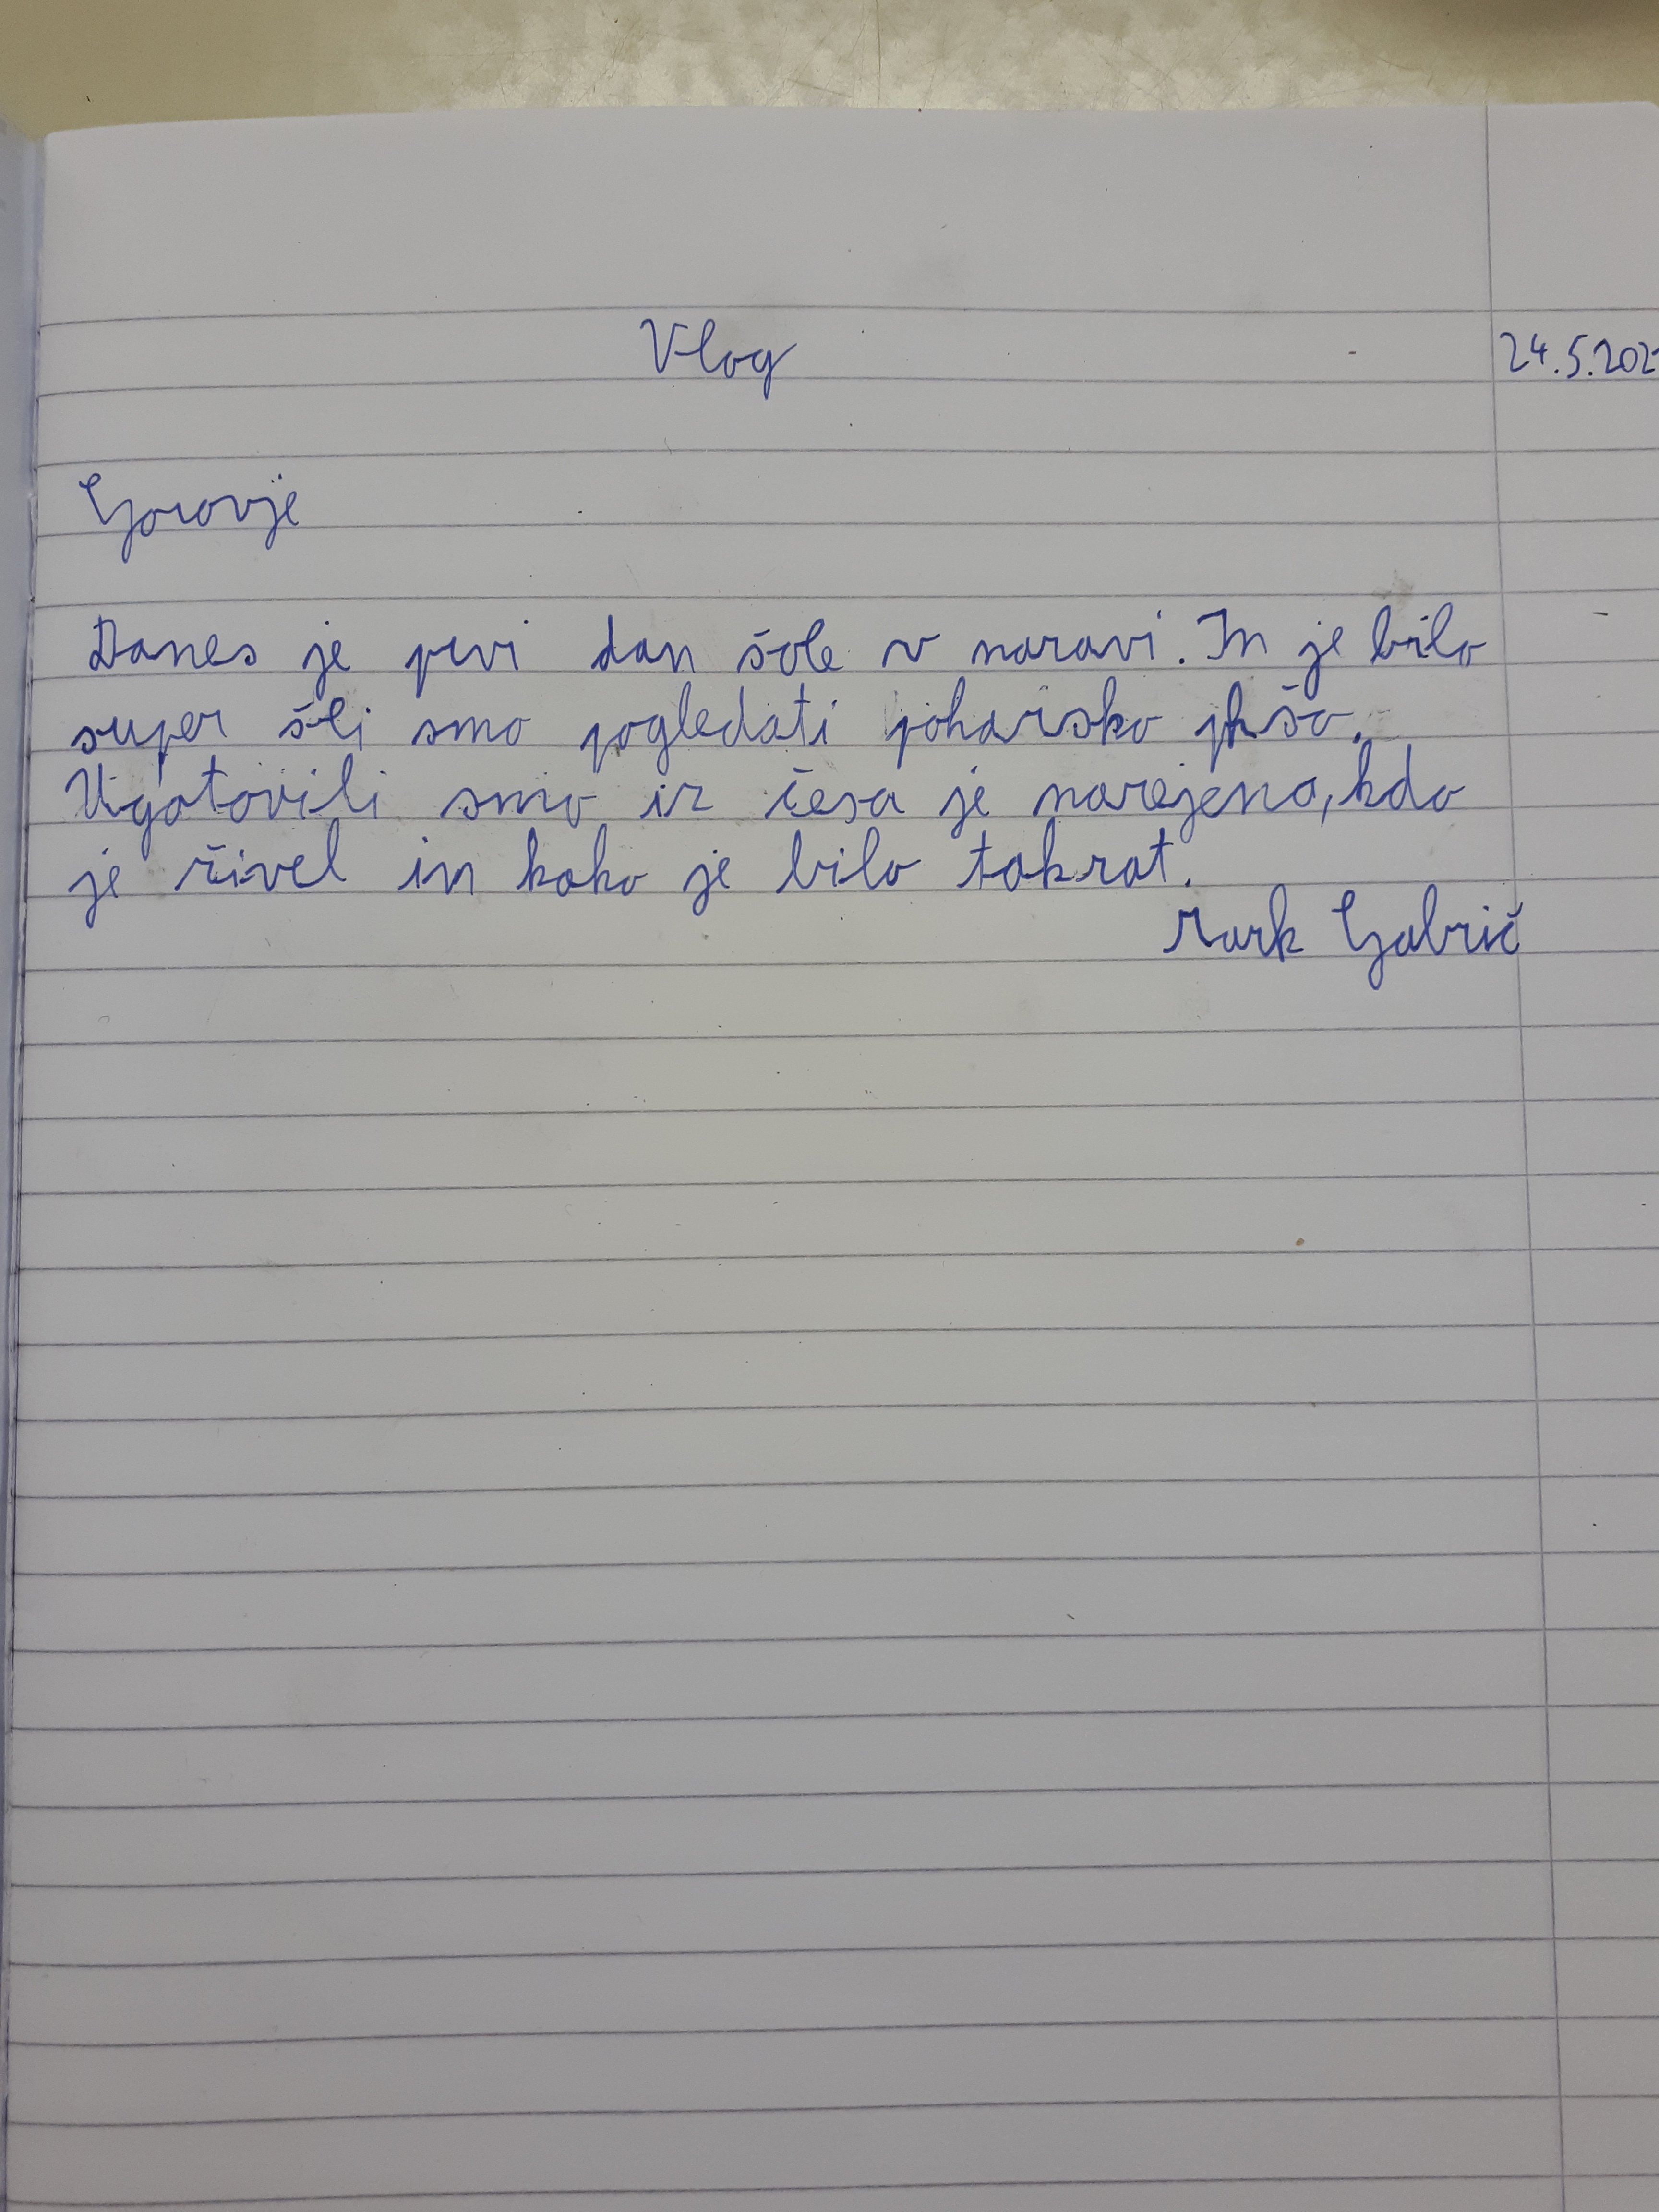 Vlog
24.5.202
Gorovje
Danes je prvi dan šole v naravi. In je bilo
super šli smo pogledati poharsko
Ugotovili smo iz česa je narejena, kdo
je živel in kako je bilo takrat.
Mark Gabrič